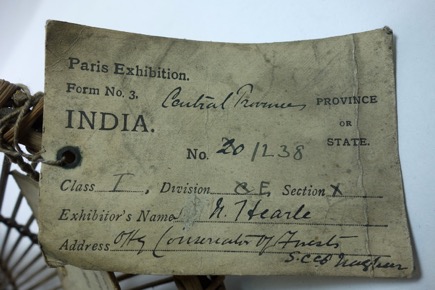 Paris Exhibition.
Form No. 3.
Central Provinces PROVINCE
OR
STATE.
INDIA.
No. 20/238
Class I, Division E, Section X
Exhibitor's Name N. Hearle
Address Offg Conservator of Forests